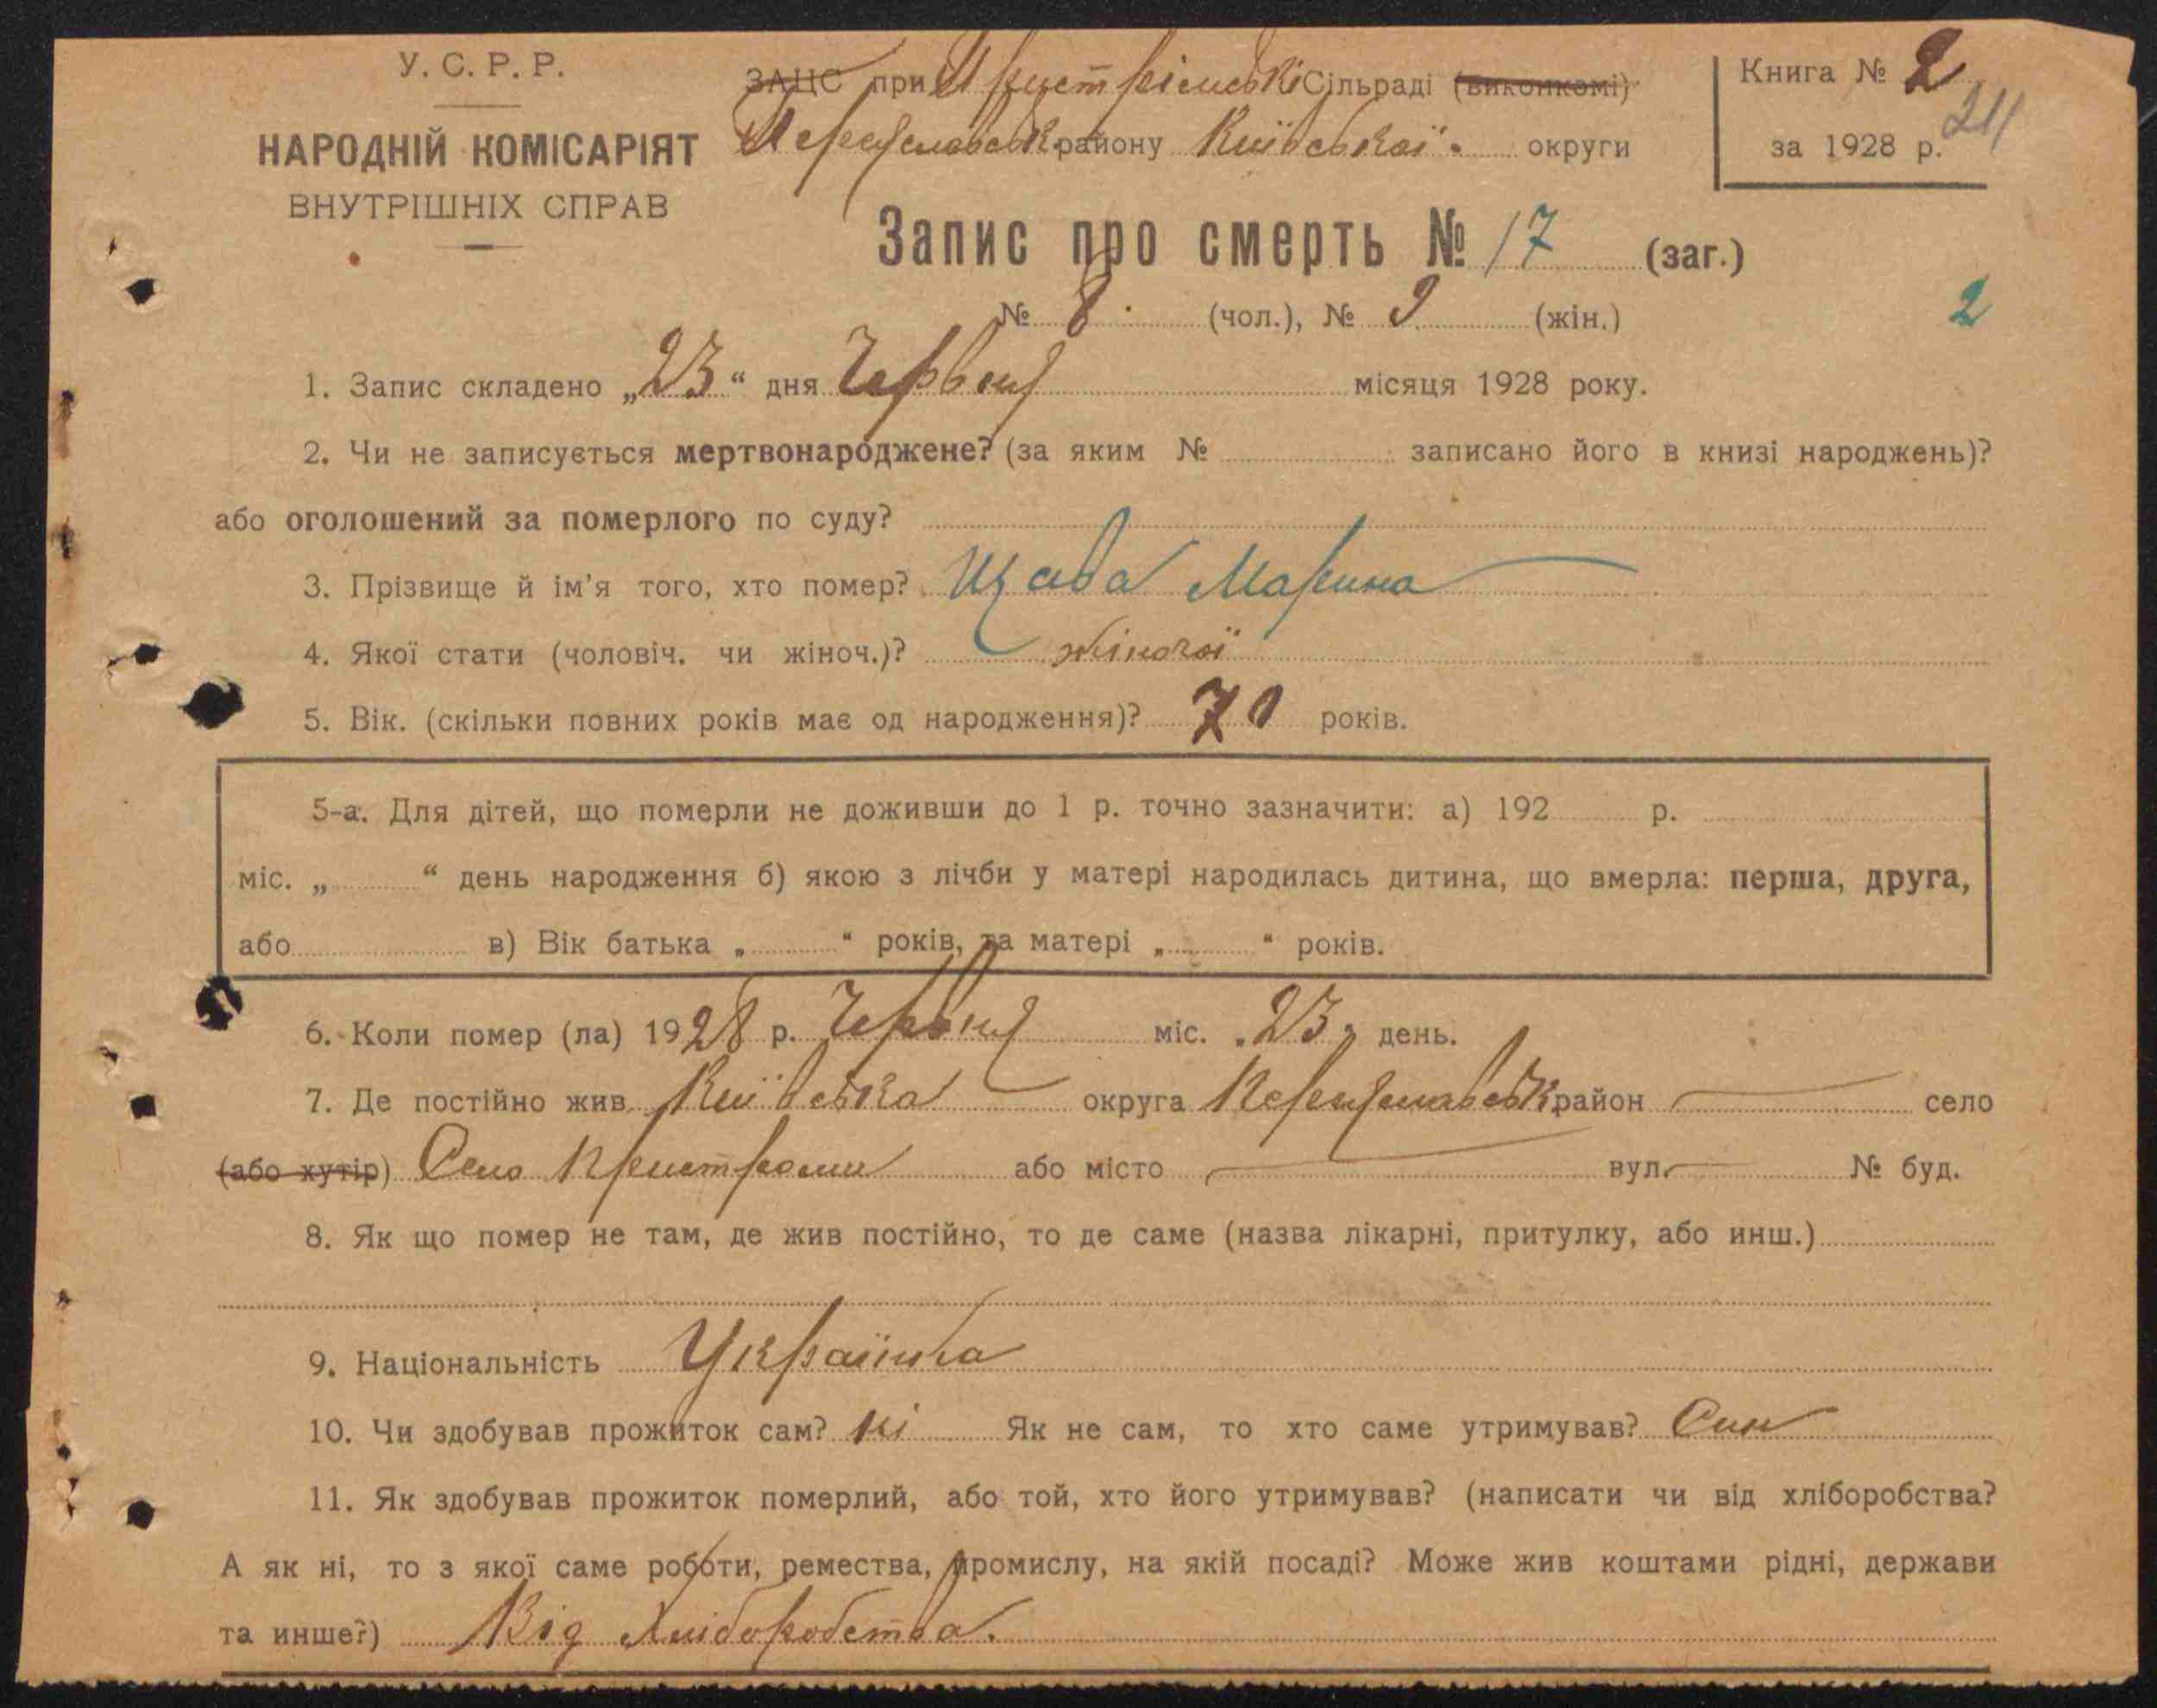 У. С. Р. Р.
НАРОДНІЙ КОМІСАРІЯТ
ВНУТРІШНІХ СПРАВ
ЗАЦС при Пристрімській Сільраді (виконкомі)
Переяславськ району Київської округи
Книга № 2
за 1928 р.
Запис про смерть № 17 (заг.)
№ 8 (чол.), № 9 (жін.)
2
1. Запис складено „23“ дня Червня місяця 1928 року.
2. Чи не записується мертвонароджене? (за яким № записано його в книзі народжень)?
або оголошений за померлого по суду?
3. Прізвище й ім'я того, хто помер? Щаба Марина
4. Якої стати (чоловіч. чи жіноч.)? жіночої
5. Вік. (скільки повних років має од народження)? 70 років.
5-а. Для дітей, що померли не доживши до 1 р. точно зазначити: а) 192 р.
міс. „ “ день народження б) якою з лічби у матері народилась дитина, що вмерла: перша, друга,
або в) Вік батька „ “ років, та матері „ “ років.
6. Коли помер (ла) 1928 р. Червня міс. „23“ день.
7. Де постійно жив Київська округа Переяславськ район село
(або хутір) Село Пристроми або місто вул. № буд.
8. Як що помер не там, де жив постійно, то де саме (назва лікарні, притулку, або инш.)
9. Національність Українка
10. Чи здобував прожиток сам? ні Як не сам, то хто саме утримував? Син
11. Як здобував прожиток померлий, або той, хто його утримував? (написати чи від хліборобства?
А як ні, то з якої саме роботи, ремества, промислу, на якій посаді? Може жив коштами рідні, держави
та инше?) Від хліборобства.